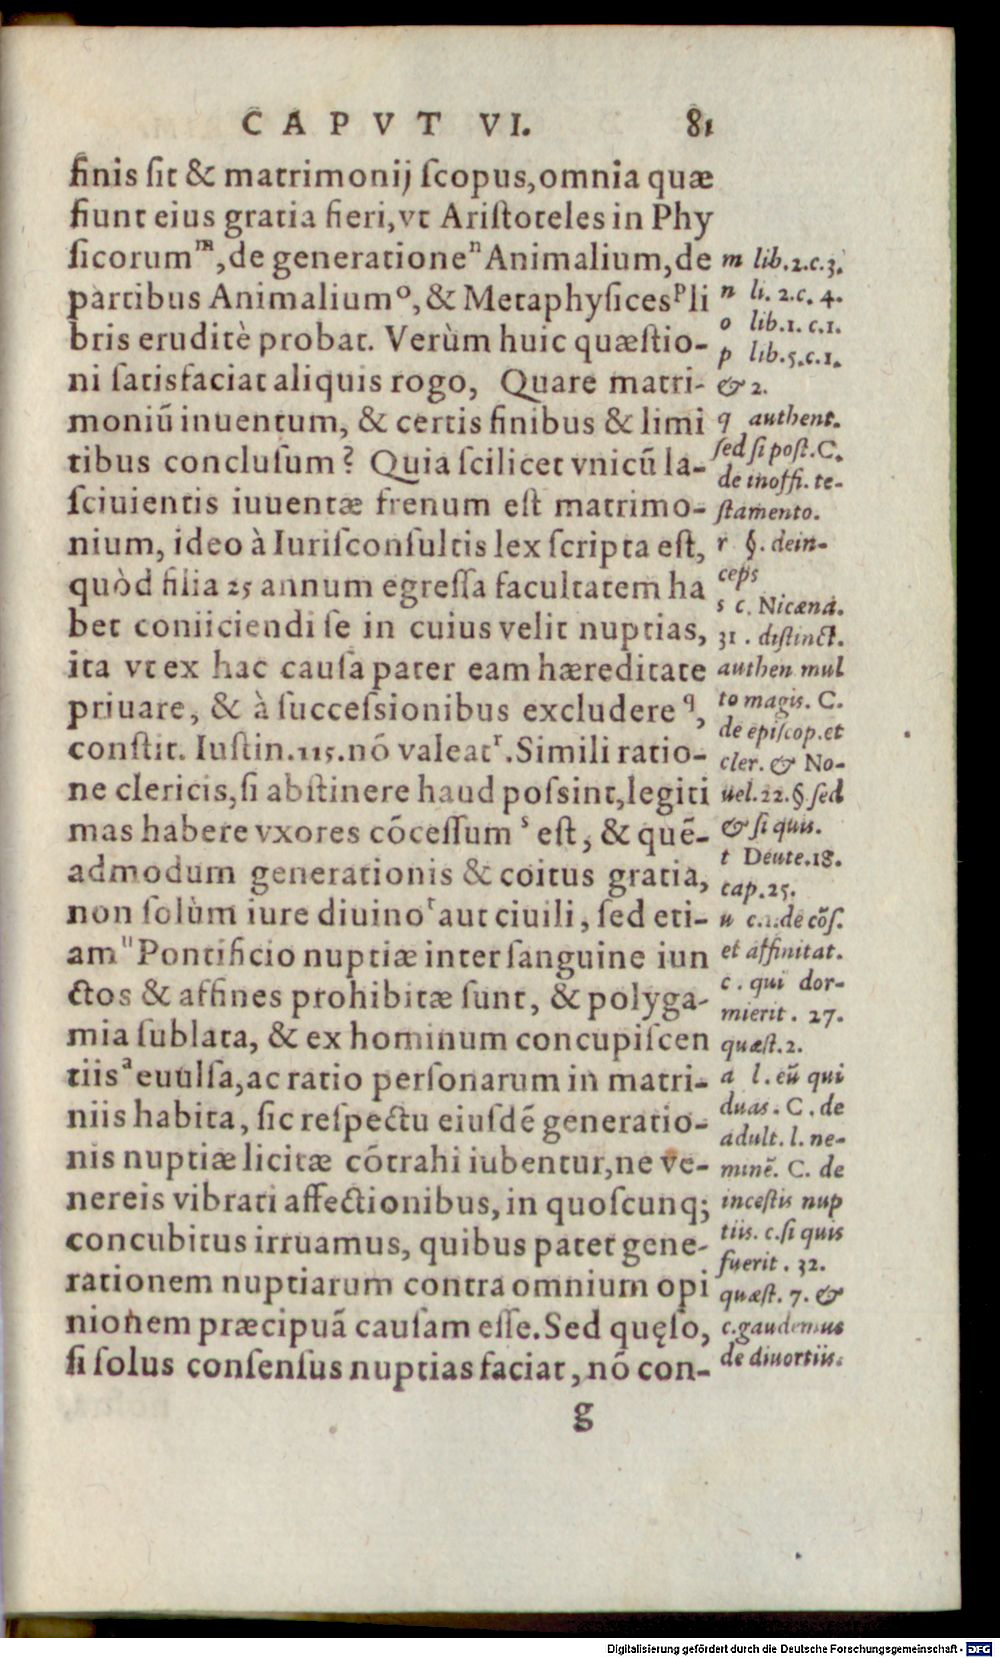 CAPVT VI. 81
finis ſit & matrimonij ſcopus,omnia quæ
fiunt eius gratia fieri,vt Ariſtoteles in Phy
ſicorumᵐ,de generationeⁿ Animalium,de
partibus Animaliumᵒ,& Metaphyſicesᵖ li
bris eruditè probat. Verùm huic quæſtio-
ni ſatisfaciat aliquis rogo, Quare matri-
moniū inuentum, & certis finibus & limi
tibus concluſum? Quia ſcilicet vnicū la-
ſciuientis iuuentæ frenum eſt matrimo-
nium, ideo à Iuriſconſultis lex ſcripta eſt,
quòd filia 25 annum egreſſa facultatem ha
bet coniiciendi ſe in cuius velit nuptias,
ita vt ex hac cauſa pater eam hæreditate
priuare, & à ſucceſsionibus excludere q,
conſtit. Iuſtin.115.nō valeatʳ.Simili ratio-
ne clericis,ſi abſtinere haud poſsint,legiti
mas habere vxores cōceſſum ˢ eſt, & quē-
admodum generationis & coitus gratia,
non ſolùm iure diuinoᵗ aut ciuili, ſed eti-
amᵘ Pontificio nuptiæ inter ſanguine iun
ctos & affines prohibitæ ſunt, & polyga-
mia ſublata, & ex hominum concupiſcen
tiisᵃ euulſa,ac ratio perſonarum in matri-
niis habita, ſic reſpectu eiuſdē generatio-
nis nuptiæ licitæ cōtrahi iubentur,ne ve-
nereis vibrati affectionibus, in quoſcunq;
concubitus irruamus, quibus patet gene-
rationem nuptiarum contra omnium opi
nionem præcipuā cauſam eſſe.Sed quęſo,
ſi ſolus conſenſus nuptias faciat, nō con-
g
m lib.2.c.3.
n li. 2.c. 4.
o lib.1. c.1.
p lib.5.c.1.
& 2.
q authent.
ſed ſi poſt.C.
de inoffi. te-
ſtamento.
r §. dein-
ceps
s c. Nicæna.
31. diſtinct.
authen mul
to magis. C.
de epiſcop.et
cler. & No-
uel.22.§.ſed
& ſi quis.
t Deute.18.
cap.25.
u c.1.de cōſ.
et affinitat.
c. qui dor-
mierit. 27.
quæſt.2.
a l.eū qui
duas. C. de
adult. l. ne-
minē. C. de
inceſtis nup
tiis. c.ſi quis
fuerit. 32.
quæſt. 7. &
c.gaudemus
de diuortiis.
Digitalisierung gefördert durch die Deutsche Forschungsgemeinschaft - DFG